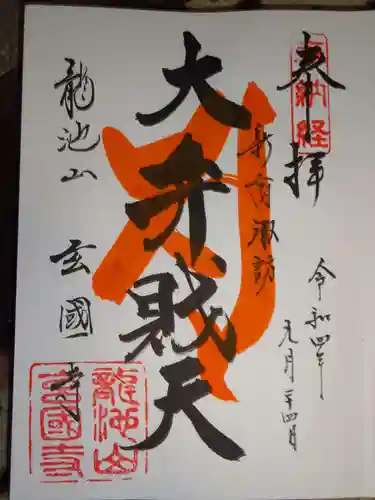 奉拝
奉納経
新宿諏訪
令和四年
九月二十四日
大弁財天
龍池山
玄國寺
龍池山
玄国寺